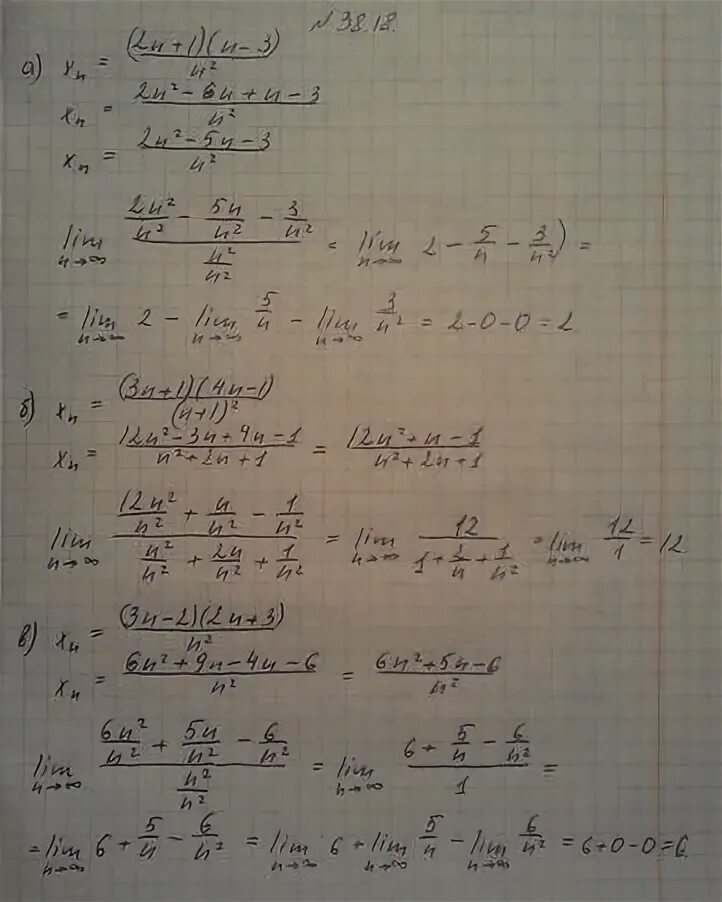 №38.18.
а) xₙ = (2n+1)(n-3)/n²
xₙ = (2n²-6n+n-3)/n²
xₙ = (2n²-5n-3)/n²
lim n→∞ (2n²/n² - 5n/n² - 3/n²)/(n²/n²) = lim n→∞ 2 - 5/n - 3/n²) =
= lim n→∞ 2 - lim n→∞ 5/n - lim n→∞ 3/n² = 2-0-0=2
б) xₙ = (3n+1)(4n-1)/(n+1)²
xₙ = (12n²-3n+4n-1)/(n²+2n+1) = (12n²+n-1)/(n²+2n+1)
lim n→∞ (12n²/n² + n/n² - 1/n²)/(n²/n² + 2n/n² + 1/n²) = lim n→∞ 12/(1+2/n+1/n²) = lim n→∞ 12/1 = 12
в) xₙ = (3n-2)(2n+3)/n²
xₙ = (6n²+9n-4n-6)/n² = (6n²+5n-6)/n²
lim n→∞ (6n²/n² + 5n/n² - 6/n²)/(n²/n²) = lim n→∞ (6 + 5/n - 6/n²)/1 =
= lim n→∞ 6 + 5/n - 6/n² = lim n→∞ 6 + lim n→∞ 5/n - lim n→∞ 6/n² = 6+0-0=6